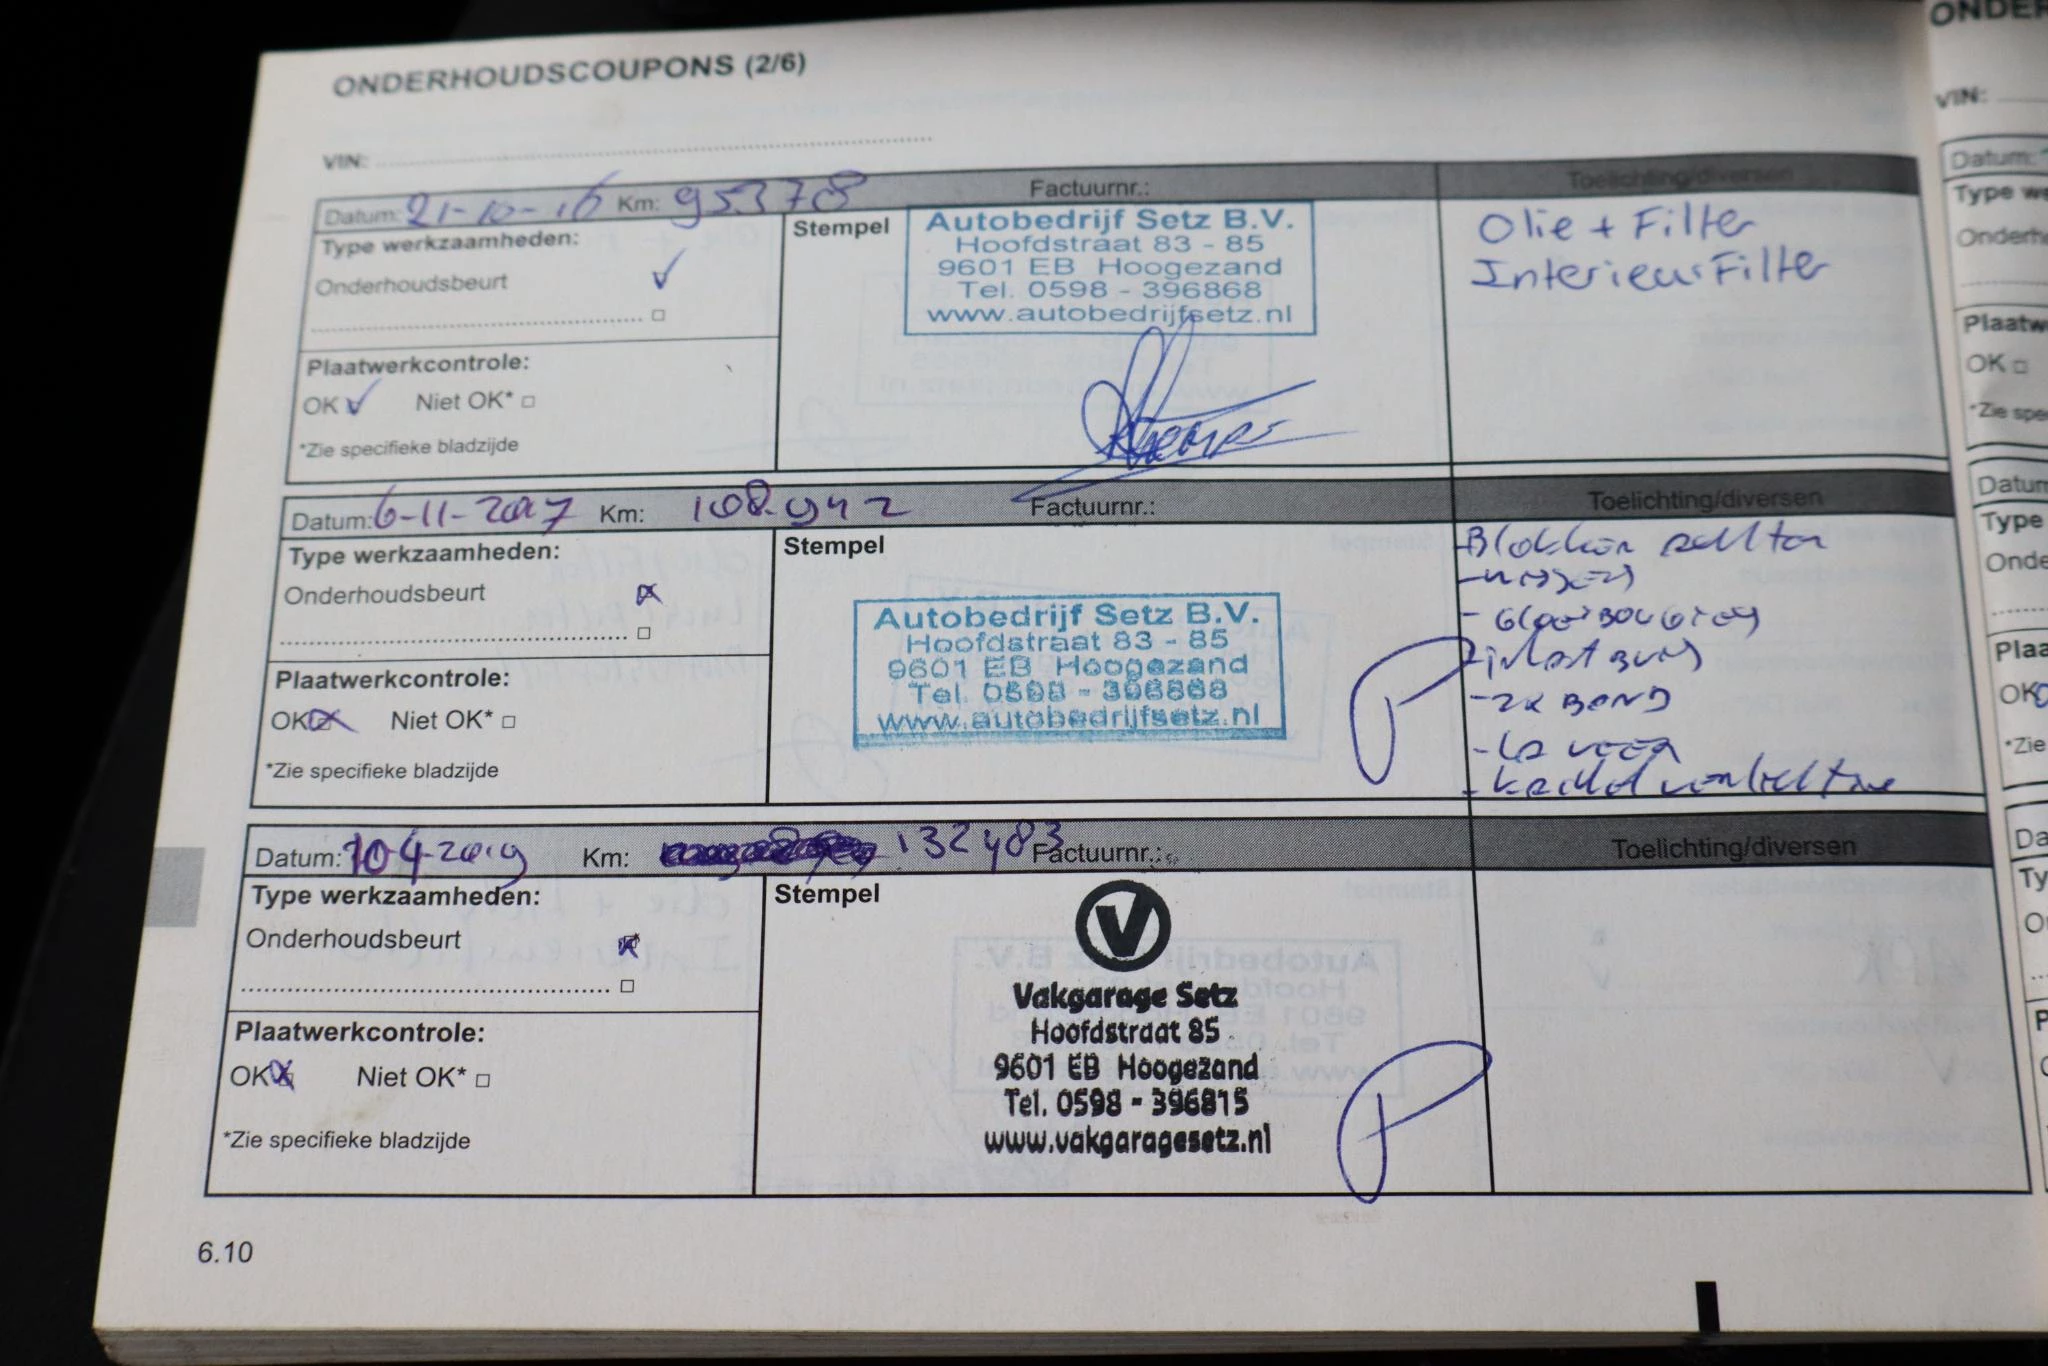 ONDERHOUDSCOUPONS (2/6)
VIN:
Datum: 21-10-16 Km: 95378 Factuurnr.: Toelichting/diversen
Type werkzaamheden:
Onderhoudsbeurt
Plaatwerkcontrole:
OK Niet OK*
*Zie specifieke bladzijde
Stempel
Autobedrijf Setz B.V.
Hoofdstraat 83 - 85
9601 EB Hoogezand
Tel. 0598 - 396868
www.autobedrijfsetz.nl
Olie + Filter
InterieurFilter
Datum: 6-11-2017 Km: 108.942 Factuurnr.: Toelichting/diversen
Type werkzaamheden:
Onderhoudsbeurt
Plaatwerkcontrole:
OK Niet OK*
*Zie specifieke bladzijde
Stempel
Autobedrijf Setz B.V.
Hoofdstraat 83 - 85
9601 EB Hoogezand
Tel. 0598 - 396868
www.autobedrijfsetz.nl
- Blokken achter
- Gloeibougies
- 2x Band
Datum: 10-4-2019 Km: 132483 Factuurnr.: Toelichting/diversen
Type werkzaamheden:
Onderhoudsbeurt
Plaatwerkcontrole:
OK Niet OK*
*Zie specifieke bladzijde
Stempel
V
Vakgarage Setz
Hoofdstraat 85
9601 EB Hoogezand
Tel. 0598 - 396815
www.vakgaragesetz.nl
6.10
VIN:
Datum:
OK